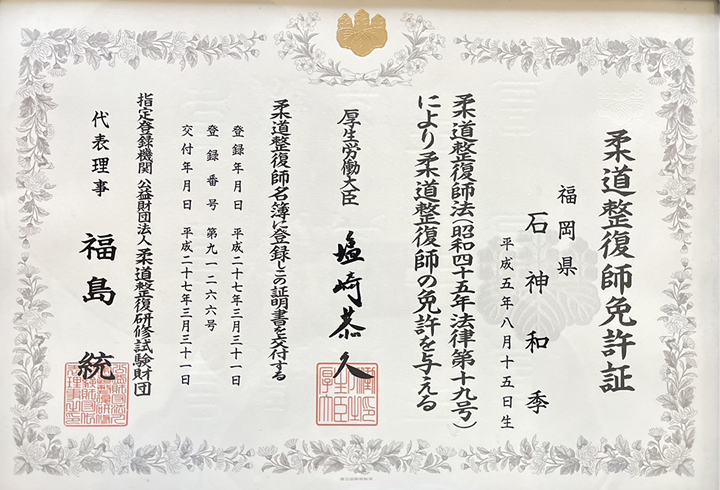 柔道整復師免許証
福岡県
石神和季
平成五年八月十五日生
柔道整復師法(昭和四十五年法律第十九号)
により柔道整復師の免許を与える
厚生労働大臣 塩崎恭久
柔道整復師名簿に登録しこの証明書を交付する
登録年月日 平成二十七年三月三十一日
登録番号 第九一二六六号
交付年月日 平成二十七年三月三十一日
指定登録機関 公益財団法人 柔道整復研修試験財団
代表理事 福島統